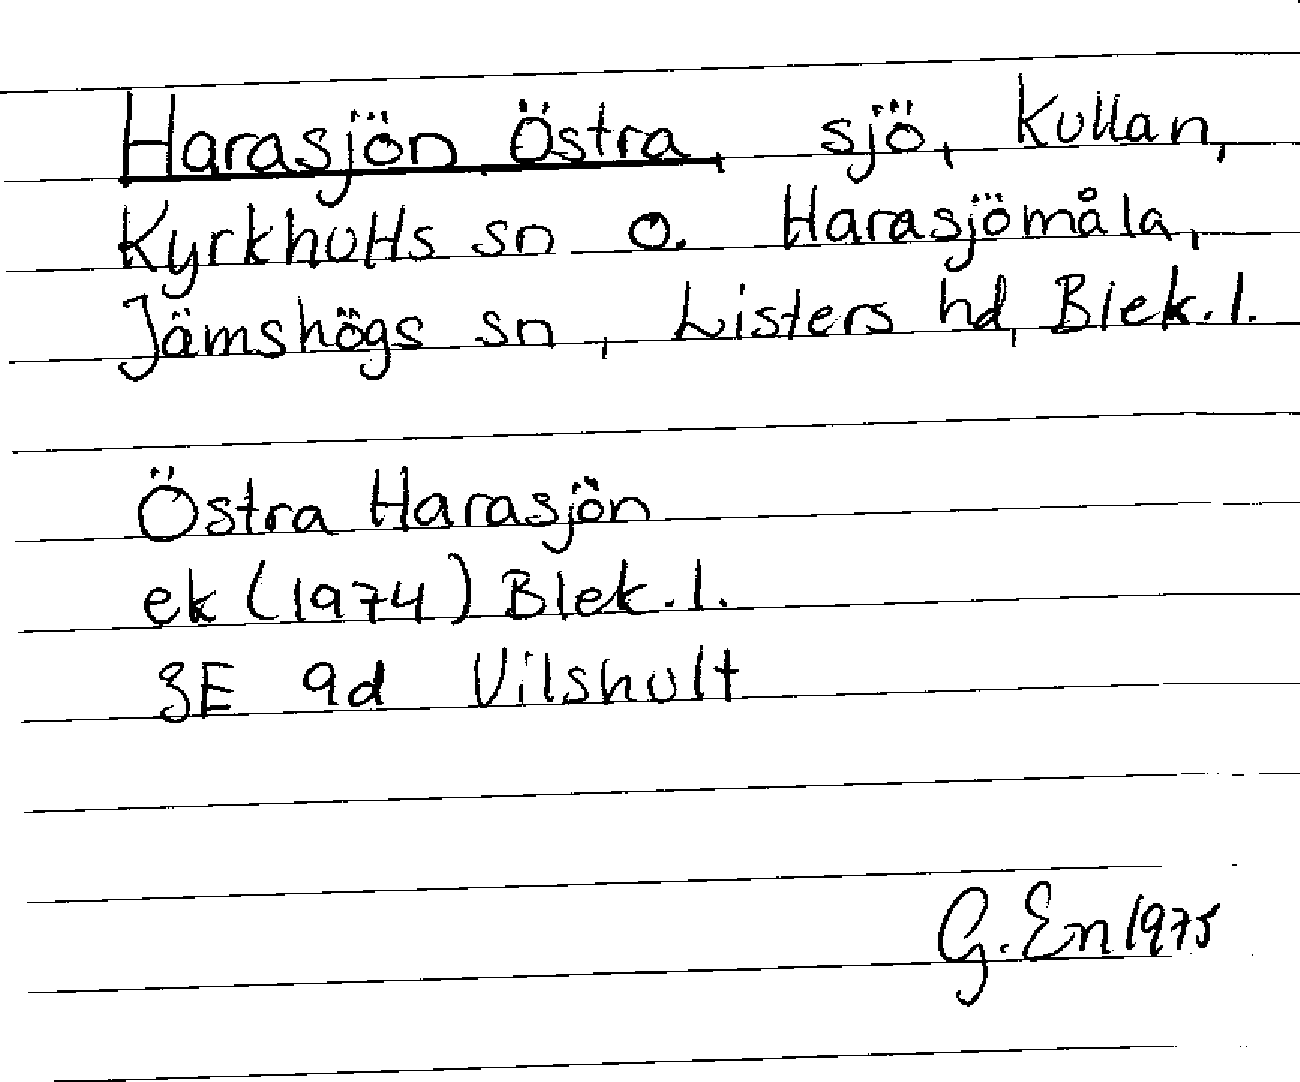 Harasjön, Östra, sjö, Kullan,
Kyrkhults sn o. Harasjömåla,
Jämshögs sn, Listers hd, Blek. l.
Östra Harasjön
ek (1974) Blek. l.
3E 9d Vilshult
G. En 1975